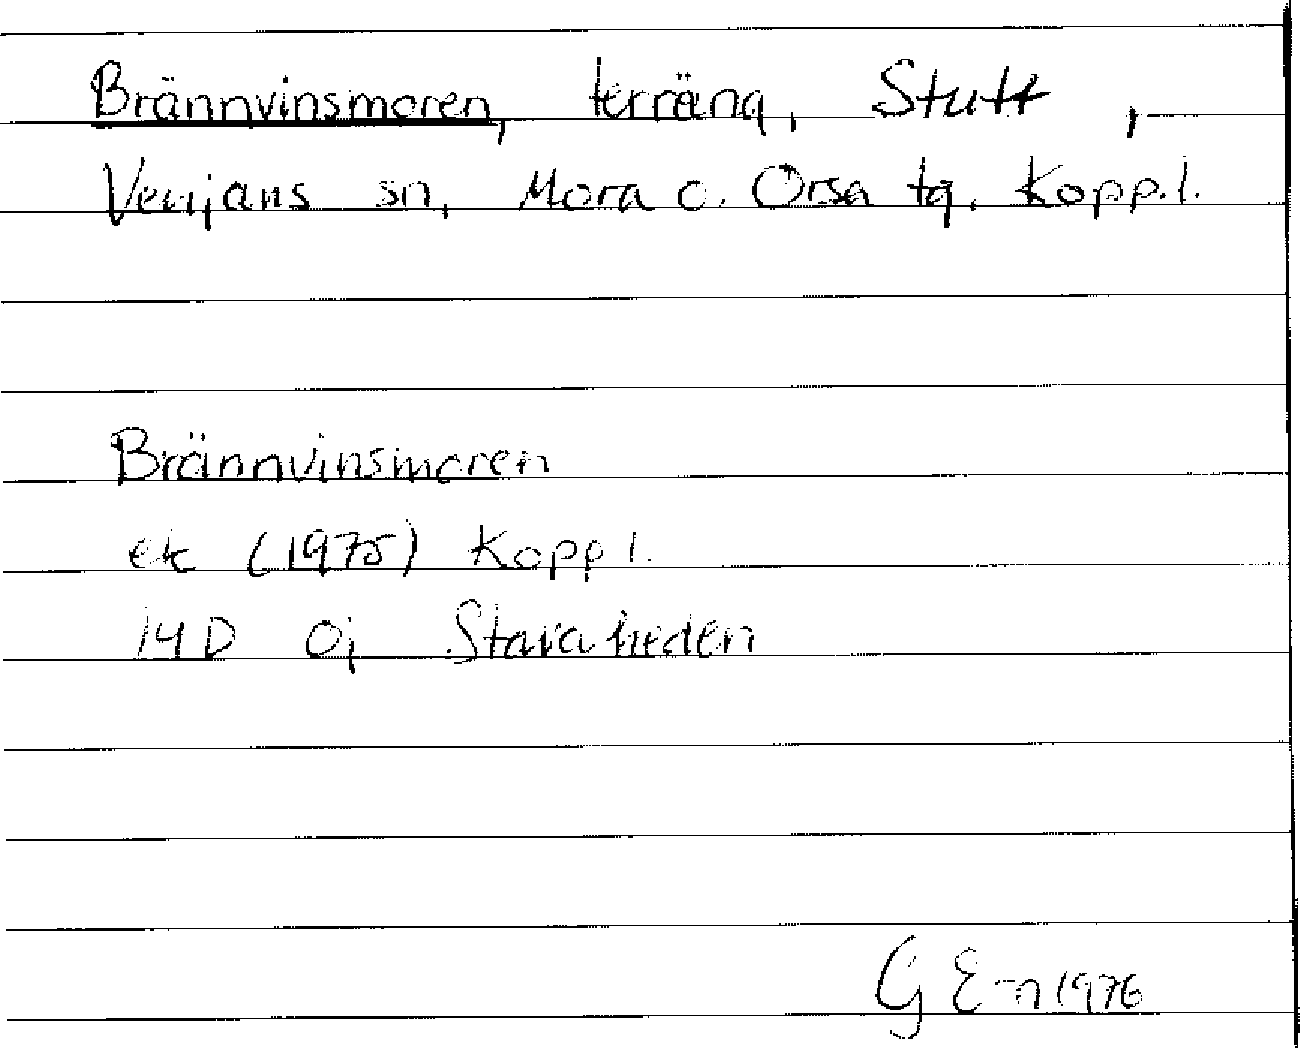 Brännvinsmoren, terräng, Stutt,
Venjans sn, Mora o. Orsa tg. Kopp.l.
Brännvinsmoren
ek (1975) Kopp l.
14 D 0j Stavaheden
G E-n 1976